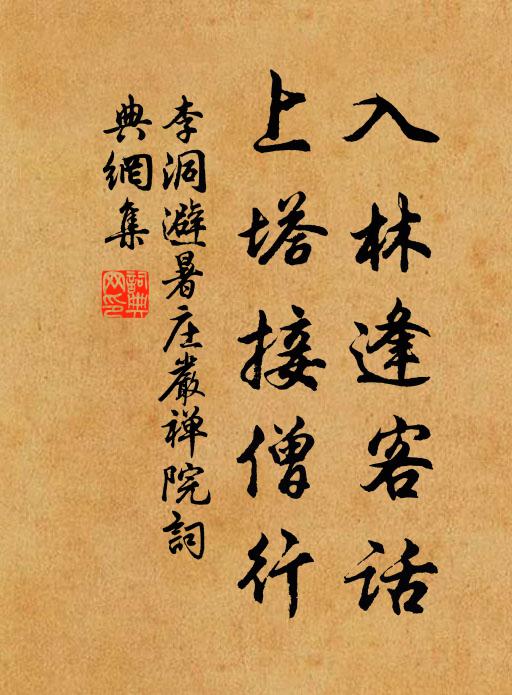 入林逢客话
上塔接僧行
李洞避暑庄嚴禅院詞
典網集
詞典网印